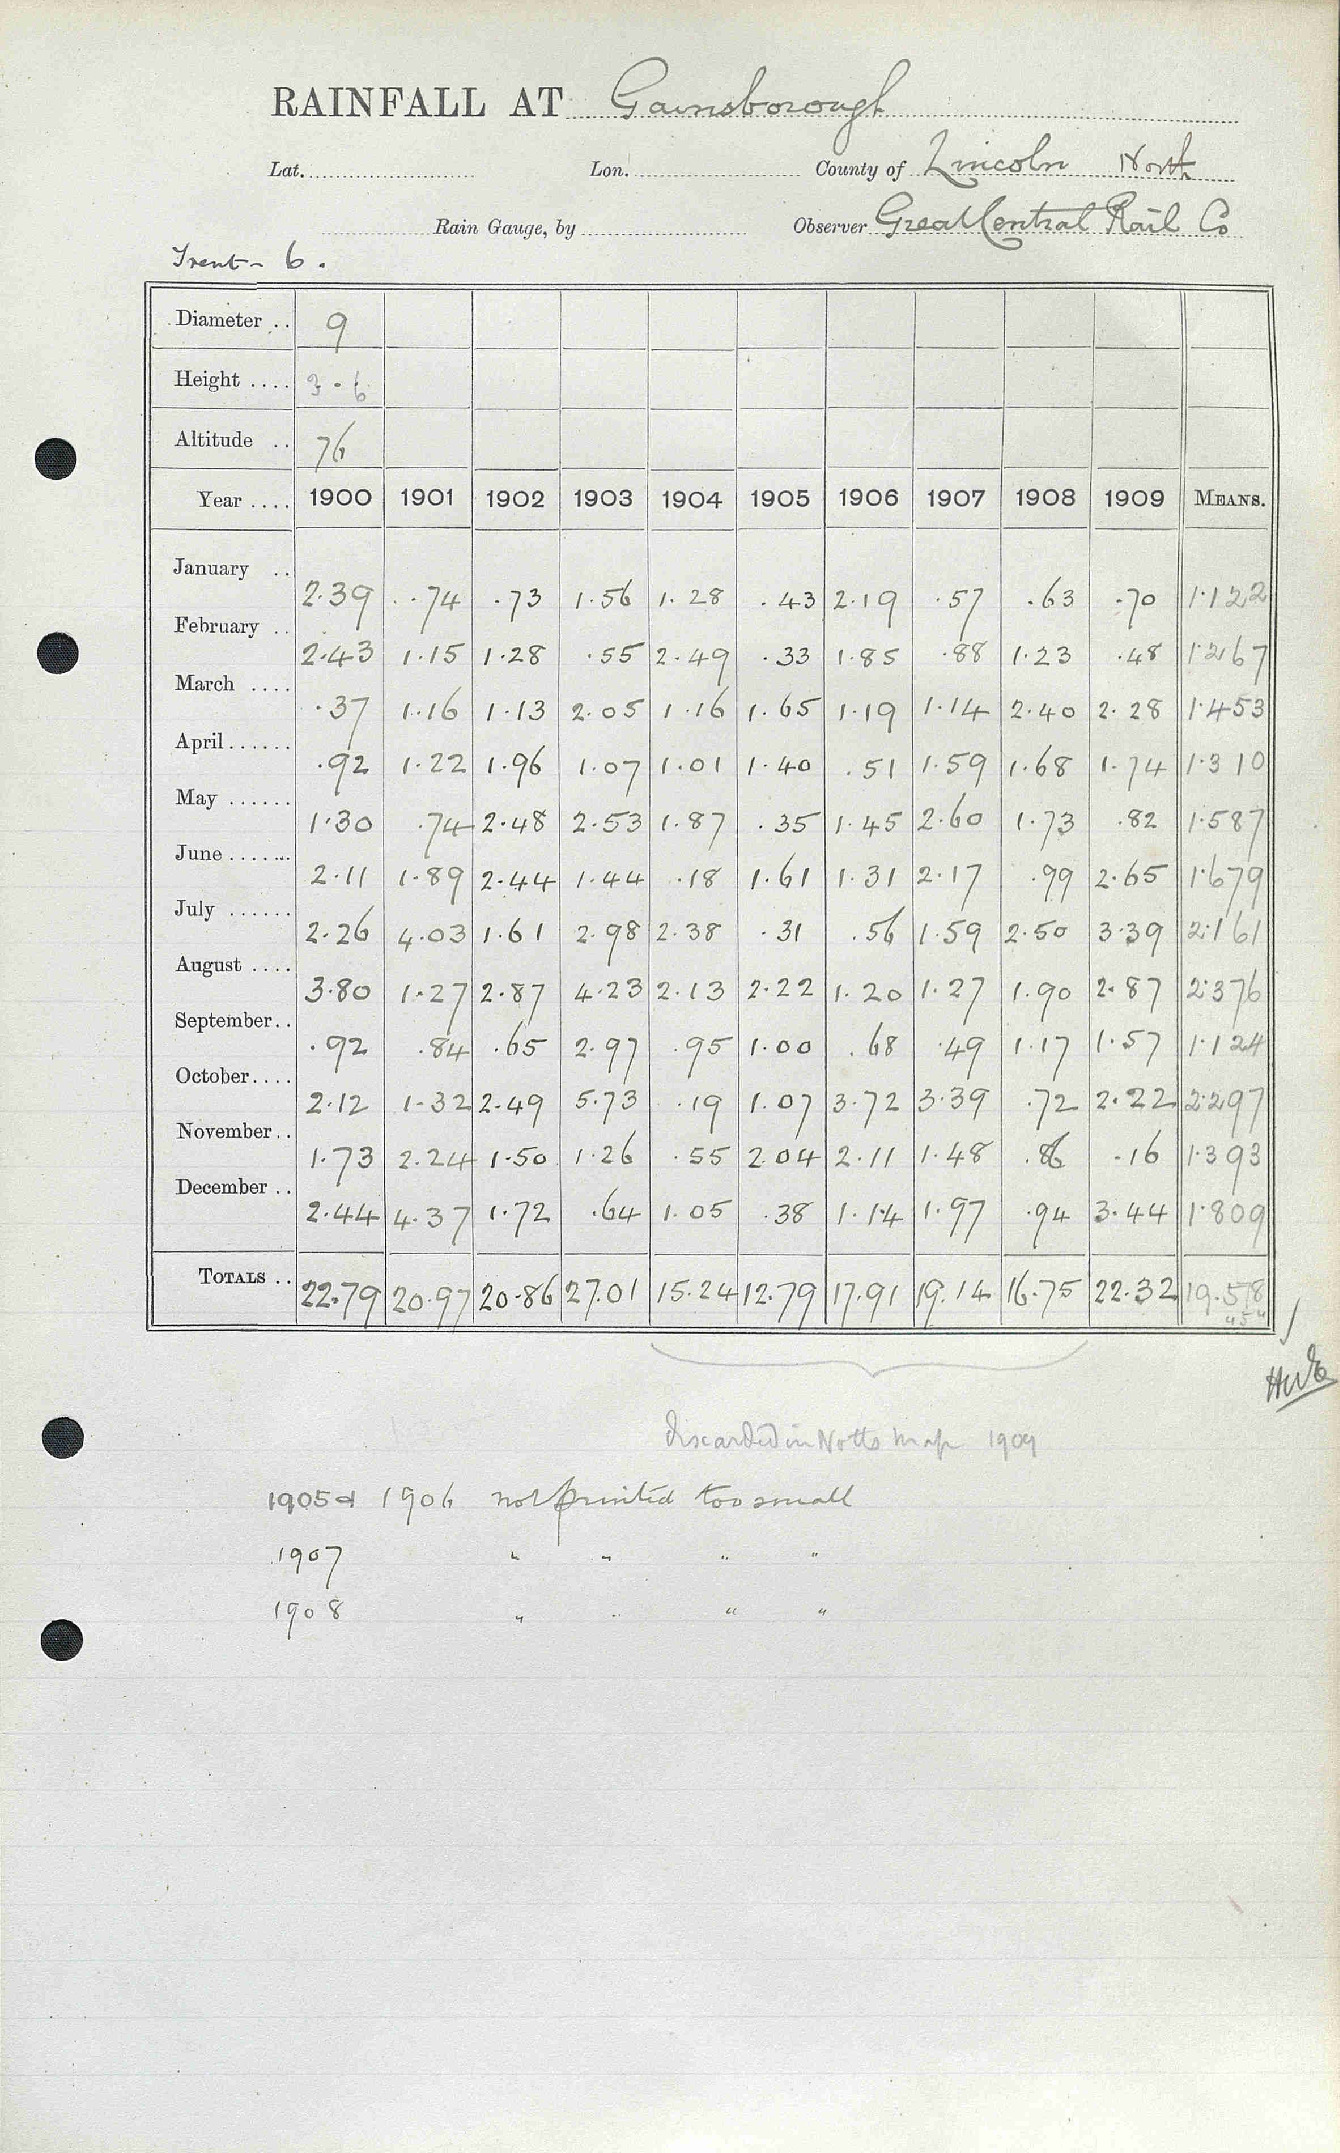 RAINFALL AT Gainsborough
Lat. Lon. County of Lincoln North
Rain Gauge, by Observer Great Central Rail Co
Trent - 6.
Diameter .. 9
Height .... 3-6
Altitude .. 76
Year .... 1900 1901 1902 1903 1904 1905 1906 1907 1908 1909 MEANS.
January .. 2.39 .74 .73 1.56 1.28 .43 2.19 .57 .63 .70 1.122
February .. 2.43 1.15 1.28 .55 2.49 .33 1.85 .88 1.23 .48 1.267
March .... .37 1.16 1.13 2.05 1.16 1.65 1.19 1.14 2.40 2.28 1.453
April ...... .92 1.22 1.96 1.07 1.01 1.40 .51 1.59 1.68 1.74 1.310
May ...... 1.30 .74 2.48 2.53 1.87 .35 1.45 2.60 1.73 .82 1.587
June ...... 2.11 1.89 2.44 1.44 .18 1.61 1.31 2.17 .99 2.65 1.679
July ...... 2.26 4.03 1.61 2.98 2.38 .31 .56 1.59 2.50 3.39 2.161
August .... 3.80 1.27 2.87 4.23 2.13 2.22 1.20 1.27 1.90 2.87 2.376
September .. .92 .84 .65 2.97 .95 1.00 .68 .49 1.17 1.57 1.124
October .... 2.12 1.32 2.49 5.73 .19 1.07 3.72 3.39 .72 2.22 2.297
November .. 1.73 2.24 1.50 1.26 .55 2.04 2.11 1.48 .86 .16 1.393
December .. 2.44 4.37 1.72 .64 1.05 .38 1.14 1.97 .94 3.44 1.809
TOTALS .. 22.79 20.97 20.86 27.01 15.24 12.79 17.91 19.14 16.75 22.32 19.578
discarded in Notts Map 1909
1905 & 1906 not printed too small
1907 " " " "
1908 " " " "